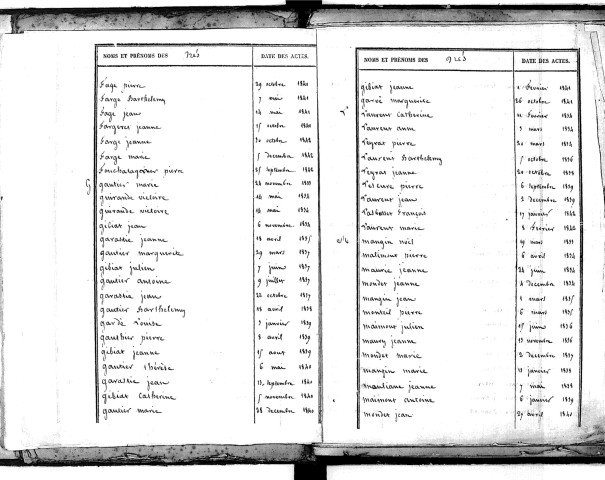 NOMS ET PRÉNOMS DES nés DATE DES ACTES.
Fage pierre 29 octobre 1840
Farge Barthelemy 7 mai 1841
Fage jean 14 mai 1841
Fargeres jeanne 15 octobre 1841
Farge jeanne 30 octobre 1842
Farge marie 5 decembre 1842
pierre 25 septembre 1842
G gautier marie 24 novembre 1833
guirande victoire 16 mai 1834
guirande victoire 16 mai 1834
gibiat jean 6 novembre 1834
garastie jeanne 18 avril 1835
gautier marguerite 29 mars 1837
gibiat julien 7 juin 1837
gautier antoine 9 juillet 1837
garastie jean 22 octobre 1837
gautier Barthelemy 18 avril 1838
garde Louise 7 janvier 1839
gauthier pierre 8 avril 1839
gibiat jeanne 15 aout 1839
gautier thérèse 6 mai 1840
garastie jean 13 septembre 1840
gibiat Catherine 5 novembre 1840
gautier marie 28 decembre 1840
NOMS ET PRÉNOMS DES nés DATE DES ACTES.
gibiat jeanne 1 février 1841
garde marguerite 26 octobre 1841
L Laurent Catherine 11 février 1834
Laurent anne 3 mars 1834
Leyrat pierre 30 mars 1834
Laurent Barthelemy 5 octobre 1836
Leyrat jeanne 20 octobre 1838
Lescure pierre 6 septembre 1839
Laurent jean 2 decembre 1839
François 17 janvier 1842
Laurent marie 8 février 1842
M mangin noël 19 mars 1833
malimont pierre 6 avril 1834
maurie jeanne 24 juin 1834
mondet jeanne 4 decembre 1834
mangin jean 1 mars 1835
monteil pierre 6 mars 1835
maimont julien 15 juin 1836
maury jeanne 13 novembre 1836
mondet marie 2 decembre 1837
mangin marie 12 janvier 1838
mauliane jeanne 7 mai 1838
maimont antoine 6 janvier 1839
mondet jean 27 avril 1840